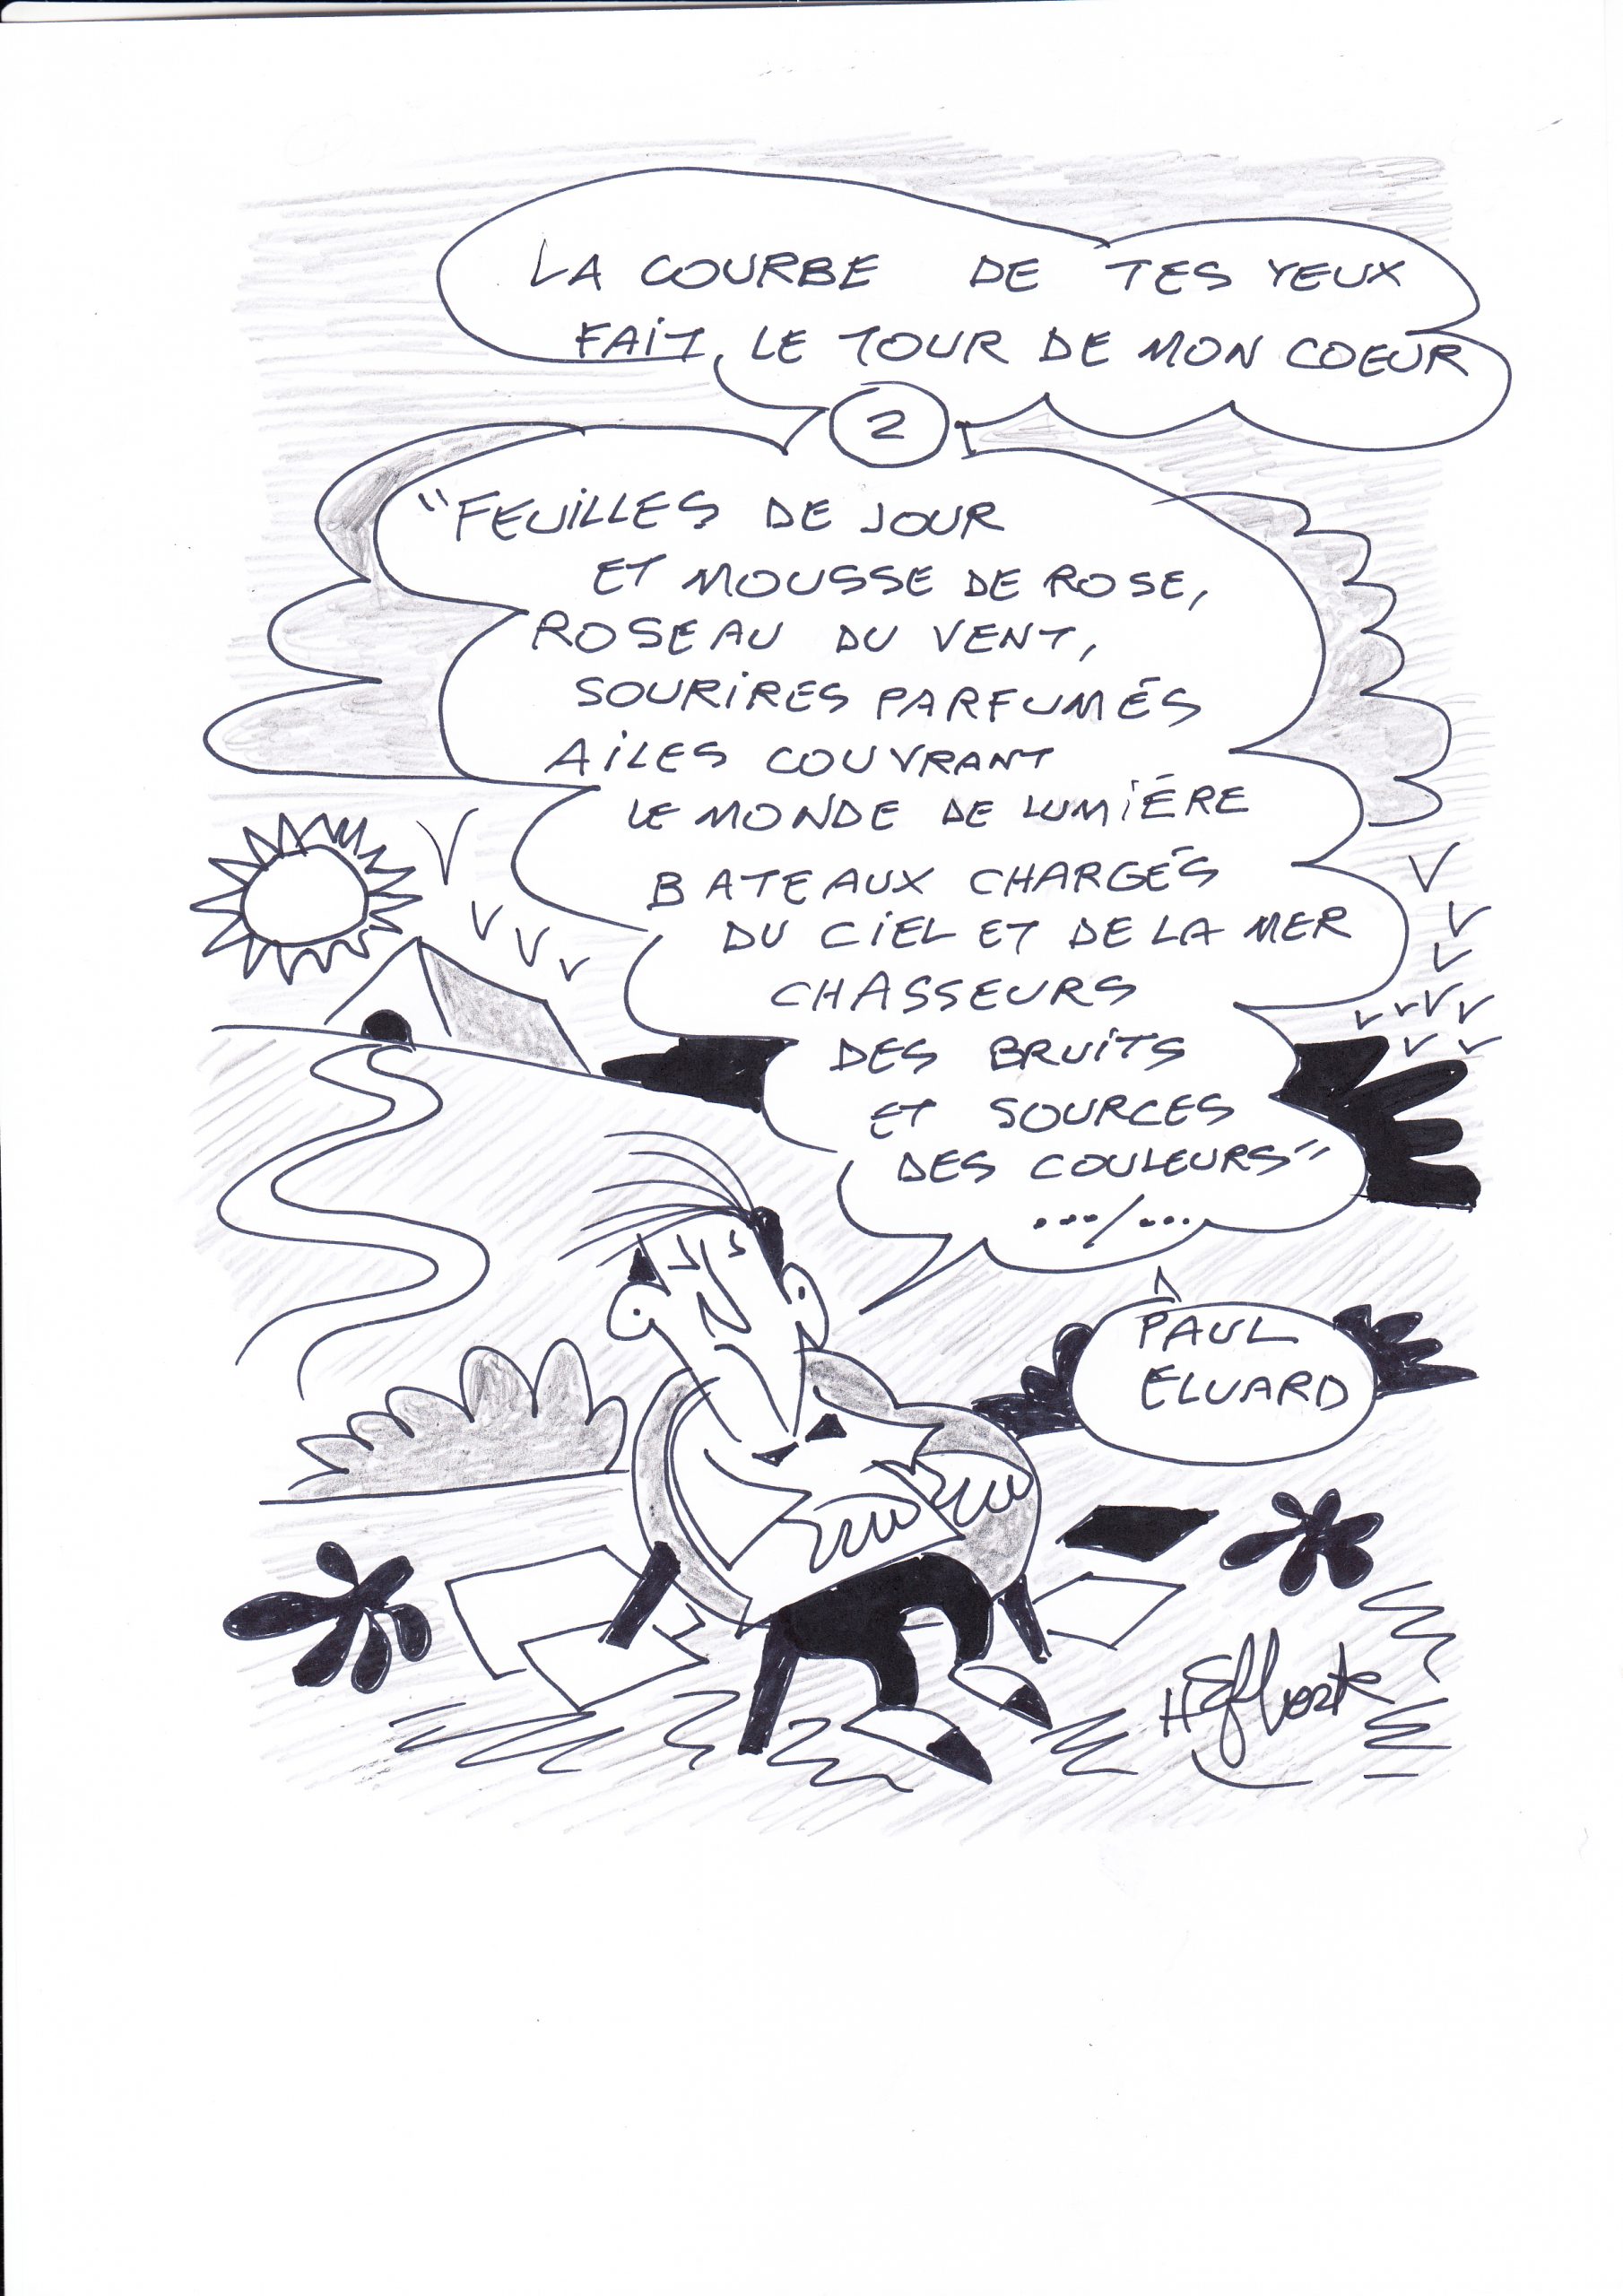 LA COURBE DE TES YEUX
FAIT LE TOUR DE MON COEUR
2
"FEUILLES DE JOUR
ET MOUSSE DE ROSE,
ROSEAU DU VENT,
SOURIRES PARFUMÉS
AILES COUVRANT
LE MONDE DE LUMIÉRE
BATEAUX CHARGÉS
DU CIEL ET DE LA MER
CHASSEURS
DES BRUITS
ET SOURCES
DES COULEURS"
.../...
PAUL
ELUARD